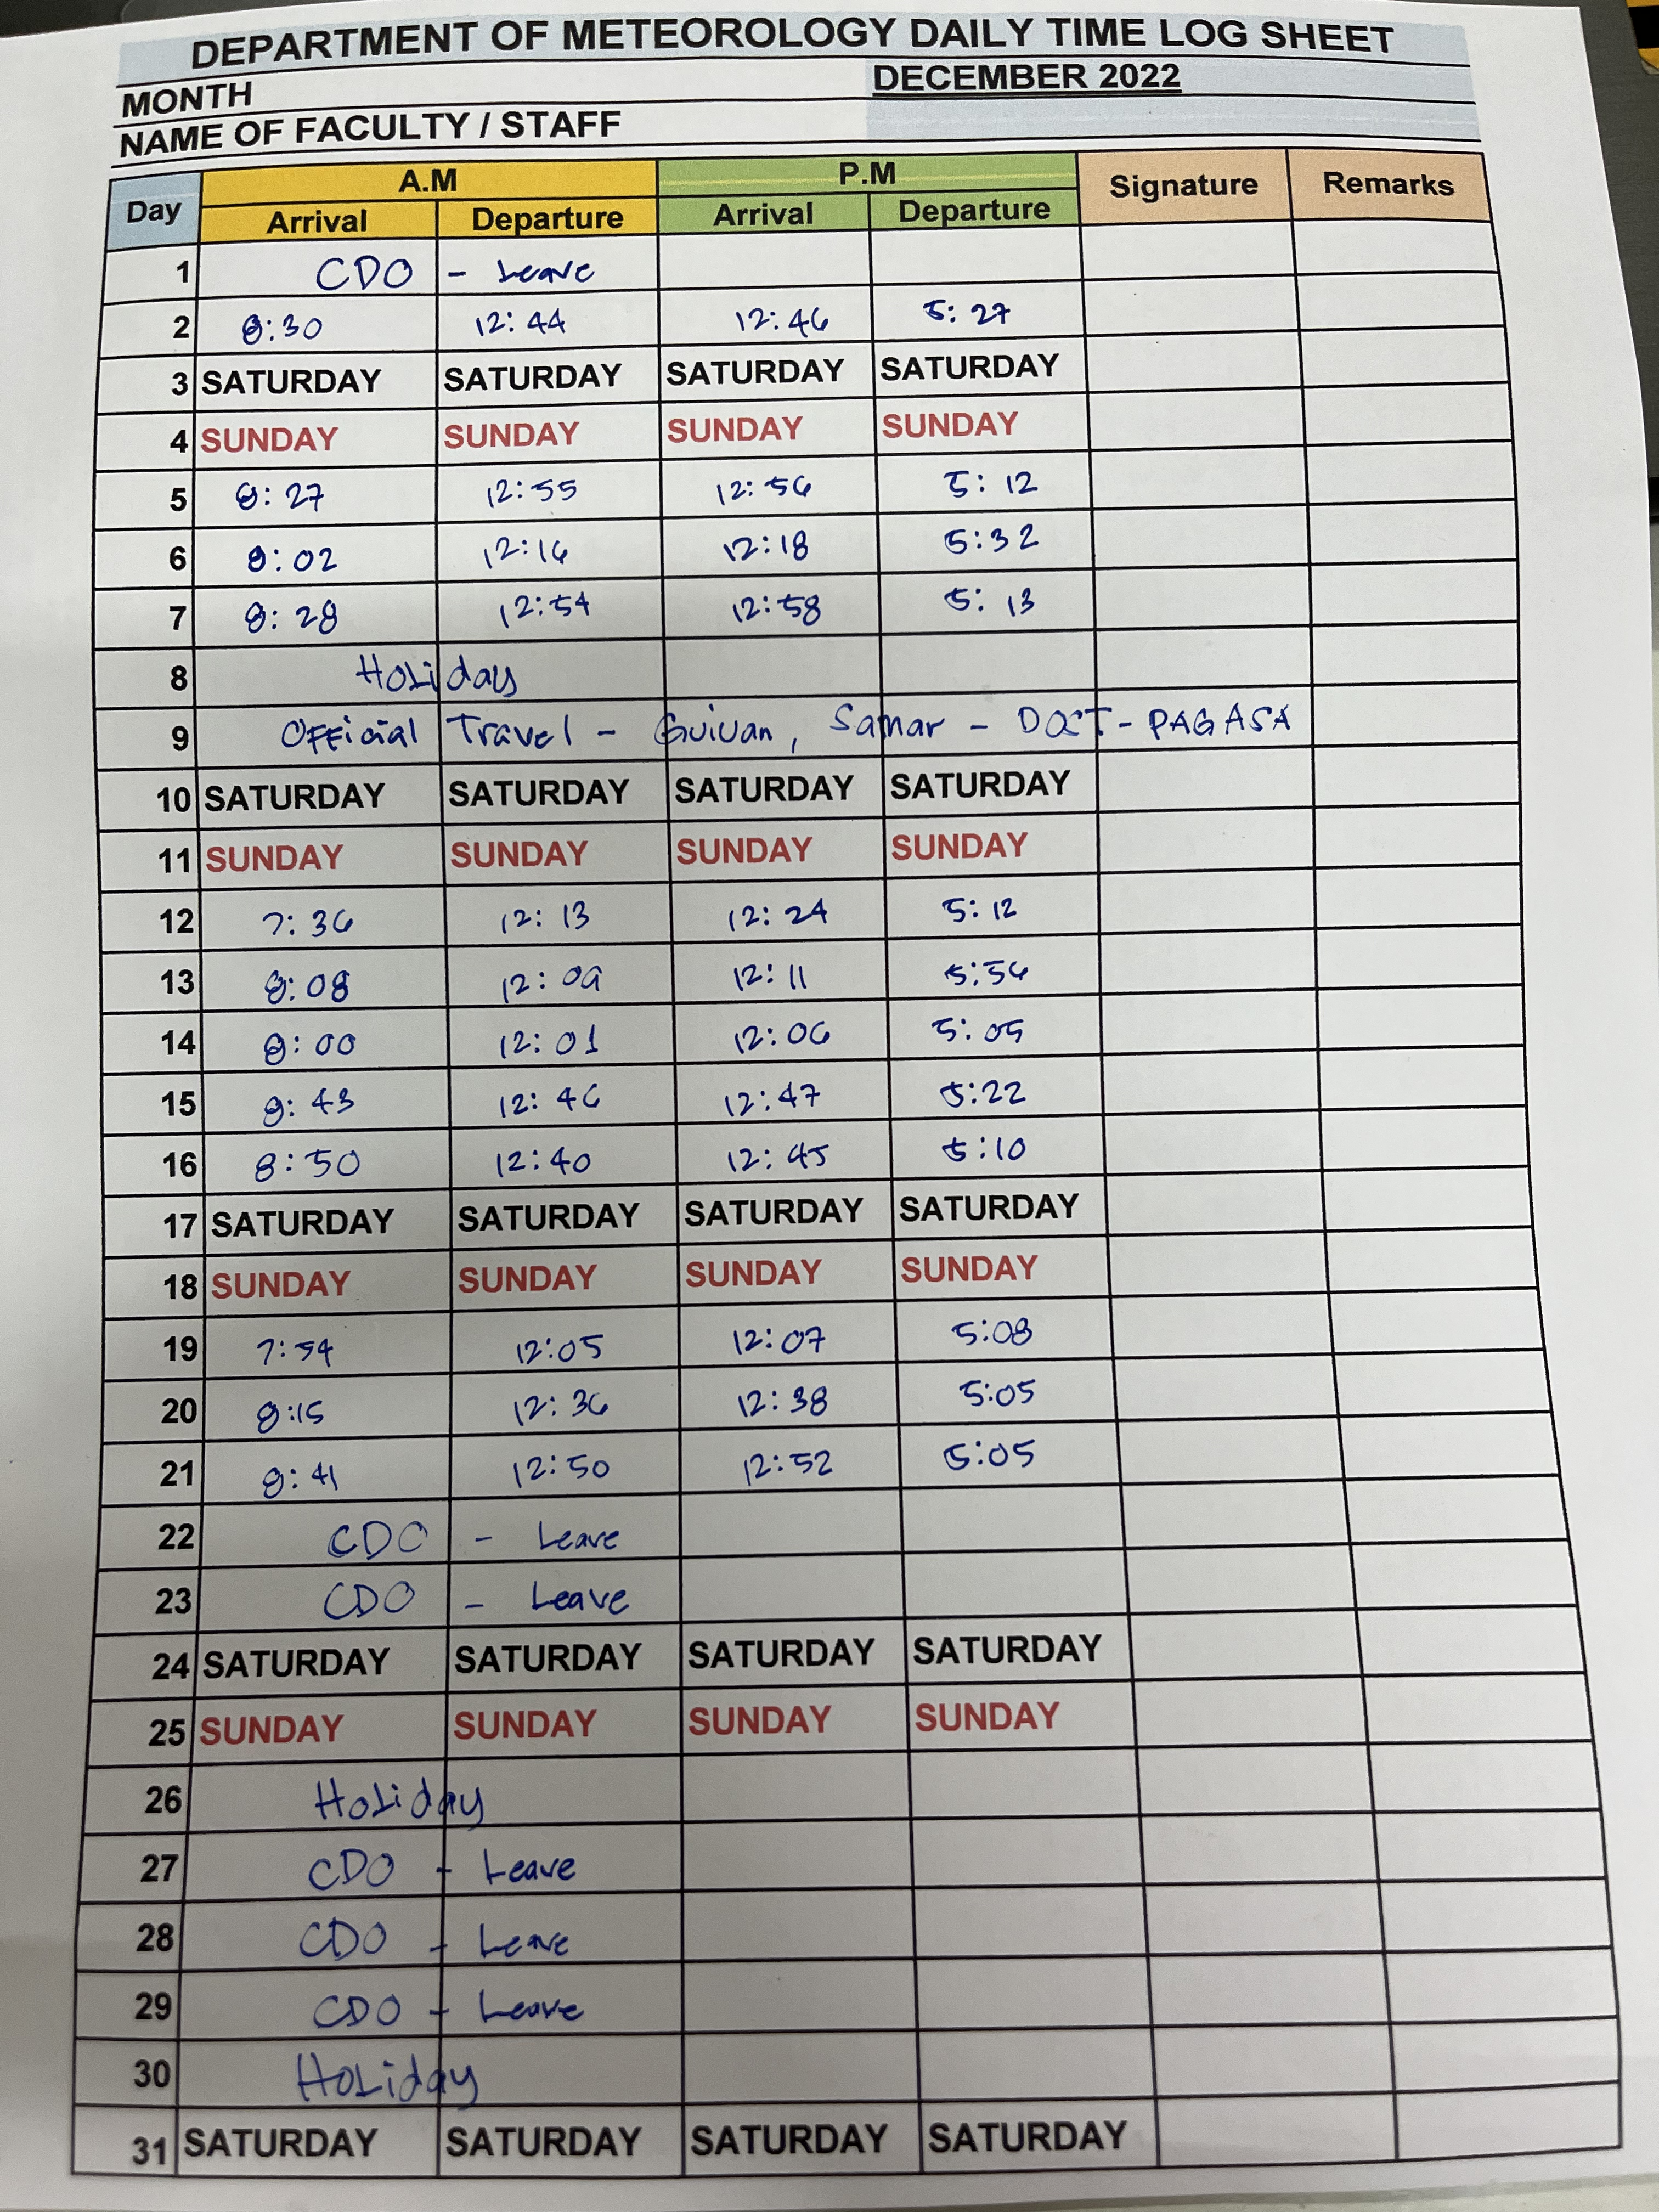 DEPARTMENT OF METEOROLOGY DAILY TIME LOG SHEET
MONTH DECEMBER 2022
NAME OF FACULTY / STAFF
Day A.M P.M Signature Remarks
Arrival Departure Arrival Departure
1 CDO - Leave
2 8:30 12:44 12:46 5:27
3 SATURDAY SATURDAY SATURDAY SATURDAY
4 SUNDAY SUNDAY SUNDAY SUNDAY
5 8:27 12:55 12:56 5:12
6 8:02 12:16 12:18 5:32
7 8:28 12:54 12:58 5:13
8 Holiday
9 Official Travel - Guiuan, Samar - DOST-PAGASA
10 SATURDAY SATURDAY SATURDAY SATURDAY
11 SUNDAY SUNDAY SUNDAY SUNDAY
12 7:36 12:13 12:24 5:12
13 8:08 12:09 12:11 5:56
14 8:00 12:01 12:06 5:05
15 8:43 12:46 12:47 5:22
16 8:50 12:40 12:45 5:10
17 SATURDAY SATURDAY SATURDAY SATURDAY
18 SUNDAY SUNDAY SUNDAY SUNDAY
19 7:54 12:05 12:07 5:08
20 8:15 12:36 12:38 5:05
21 8:41 12:50 12:52 5:05
22 CDO - Leave
23 CDO - Leave
24 SATURDAY SATURDAY SATURDAY SATURDAY
25 SUNDAY SUNDAY SUNDAY SUNDAY
26 Holiday
27 CDO - Leave
28 CDO - Leave
29 CDO - Leave
30 Holiday
31 SATURDAY SATURDAY SATURDAY SATURDAY